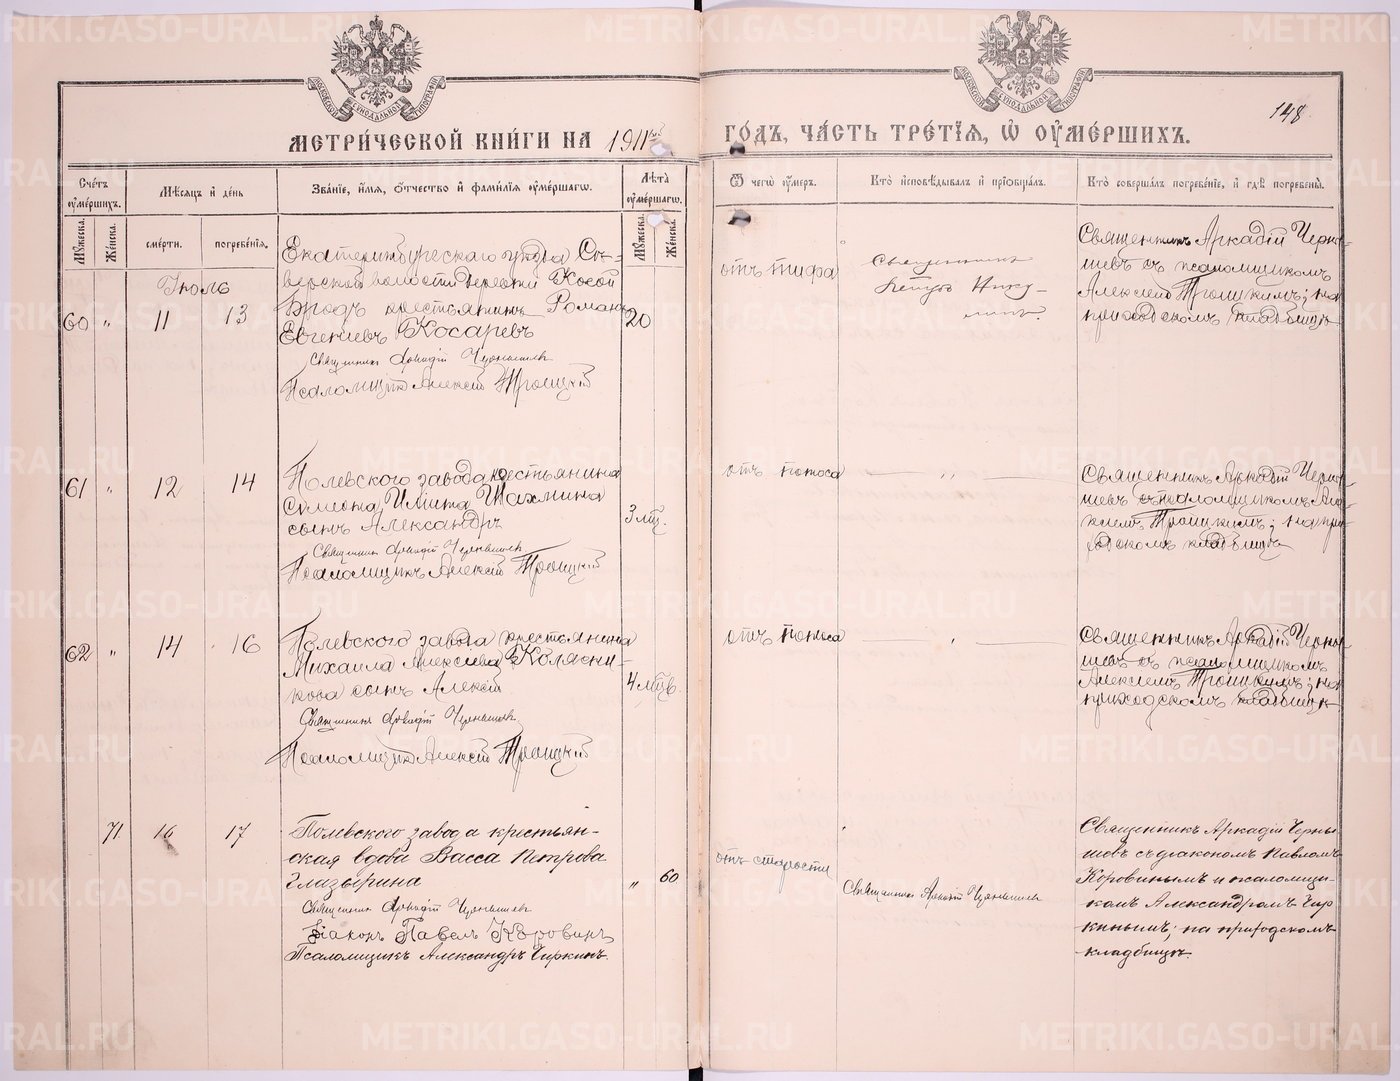 148.
МЕТРИ́ЧЕСКОЙ КНИ́ГИ НА 1911й ГО́ДЪ, ЧА́СТЬ ТРЕ́ТІѦ, Ѡ ОУМЕ́РШИХЪ.
Сче́тъ оуме́ршихъ.
Мѣсяцъ и день
Зва́ніе, и́мя, о́тчество и фами́лія оуме́ршагѡ.
Лѣ́та оуме́ршагѡ.
Ѿ чегѡ̀ оу́меръ.
Кто̀ и҆сповѣ́дывалъ и҆ прїѡбща́лъ.
Кто̀ соверша́лъ погребе́нїе, и҆ гдѣ̀ погребены̀.
Мꙋжеска.
Женска.
смерти.
погребенія.
Мꙋжеска.
Женска.
Іюль
60 " 11 13
Екатеринбургскаго уѣзда Сы-
сертской волости деревни Косой
Бродъ крестьянинъ Романъ
Евгеніевъ Косаревъ
Священникъ Аркадій Чернышевъ
Псаломщикъ Алексій Троицкій
20
отъ тифа
Священникъ
Петръ Нику-
линъ
Священникъ Аркадій Черны-
шевъ съ псаломщикомъ
Алексіемъ Троицкимъ; на
приходскомъ кладбищѣ
61 " 12 14
Полевского завода крестьянина
Симеона Шахмина
сынъ Александръ
Священникъ Аркадій Чернышевъ
Псаломщикъ Алексій Троицкій
3 мѣс.
отъ поноса
— " —
Священникъ Аркадій Черны-
шевъ съ псаломщикомъ Але-
ксіемъ Троицкимъ; на при-
ходскомъ кладбищѣ
62 " 14 16
Полевского завода крестьянина
Михаила Алексіева Колясни-
кова сынъ Алексій
Священникъ Аркадій Чернышевъ
Псаломщикъ Алексій Троицкій
4 мѣс.
отъ поноса
— " —
Священникъ Аркадій Черны-
шевъ съ псаломщикомъ
Алексіемъ Троицкимъ; на
приходскомъ кладбищѣ
71 16 17
Полевского завода крестьян-
ская вдова Васса Петрова
Глазырина
Священникъ Аркадій Чернышевъ
Діаконъ Павелъ Коровинъ
Псаломщикъ Александръ Чиркинъ.
" 60
отъ старости
Священникъ Аркадій Чернышевъ
Священникъ Аркадій Черны-
шевъ съ діакономъ Павломъ
Коровинымъ и псаломщи-
комъ Александромъ Чир-
кинымъ; на приходскомъ
кладбищѣ.